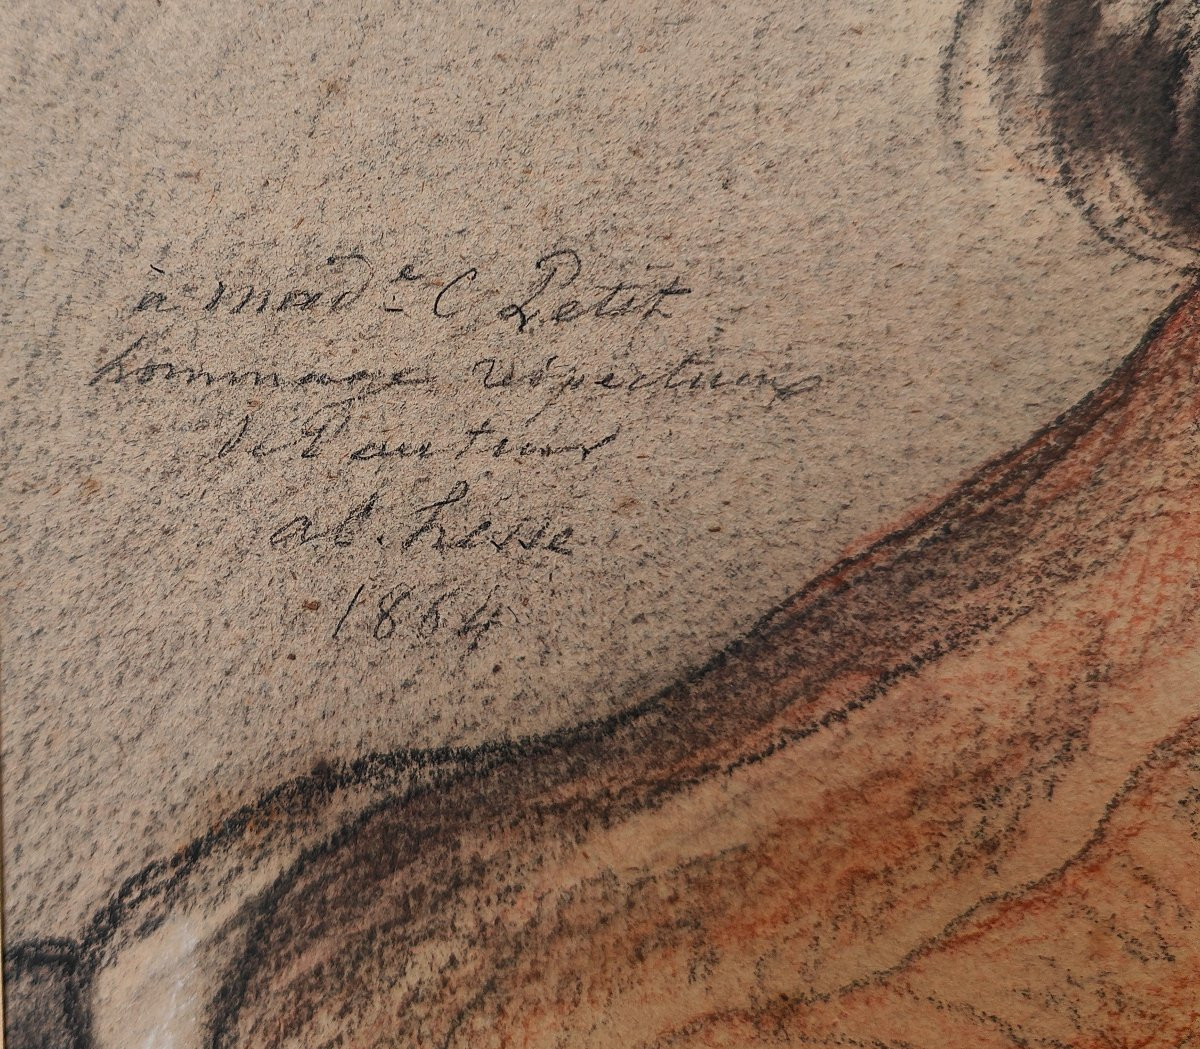 à mad.e C Petit
hommage respectueux
de l'auteur
al. hesse
1864